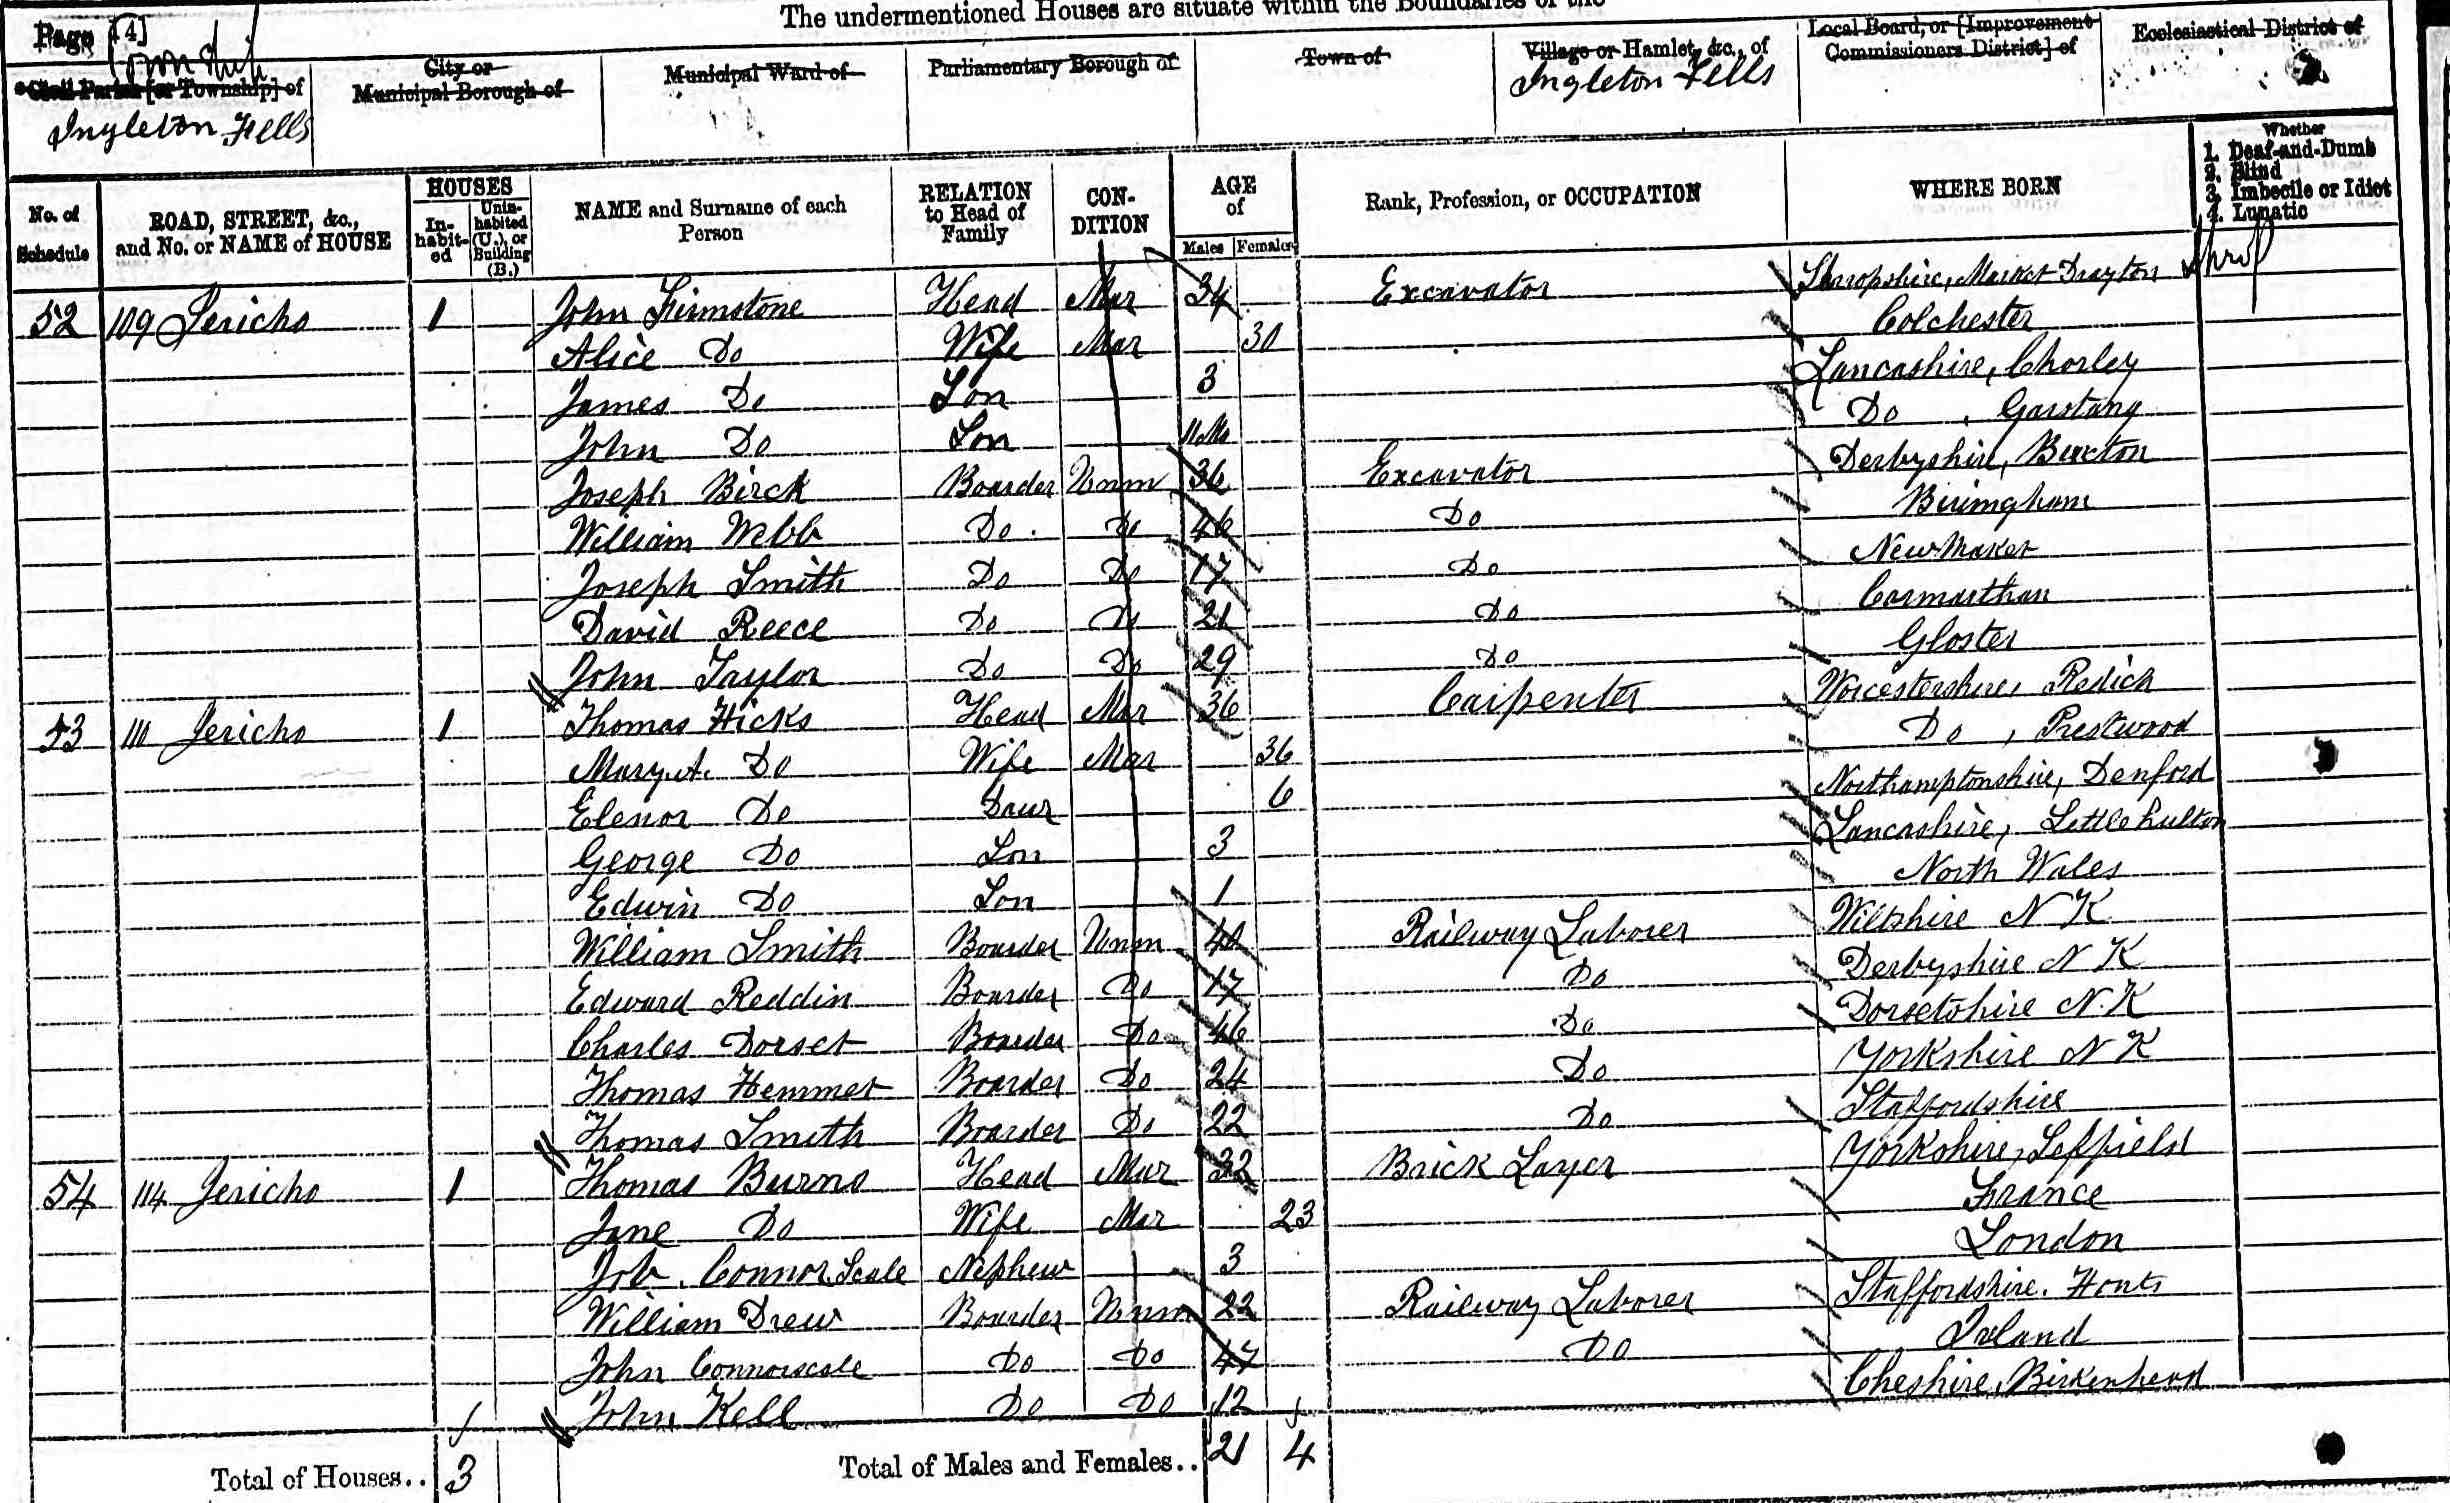 The undermentioned Houses are situate within the Boundaries of the
Page 14]
Township
Civil Parish [or Township] of
Ingleton Fells
City or
Municipal Borough of
Municipal Ward of
Parliamentary Borough of
Town of
Village or Hamlet, &c., of
Ingleton Fells
Local Board, or [Improvement
Commissioners District] of
Ecclesiastical District of
No. of Schedule
ROAD, STREET, &c., and No. or NAME of HOUSE
HOUSES
In-habit-ed
Unin-habited (U.), or Building (B.)
NAME and Surname of each Person
RELATION to Head of Family
CON-DITION
AGE of
Males
Females
Rank, Profession, or OCCUPATION
WHERE BORN
Whether
1. Deaf-and-Dumb
2. Blind
3. Imbecile or Idiot
4. Lunatic
52 109 Jericho 1 John Firmstone Head Mar 34 Excavator Shropshire, Market Drayton Shrop
Alice Do Wife Mar 30 Colchester
James Do Son 3 Lancashire, Chorley
John Do Son 11 Mo Do, Garstang
Joseph Birck Boarder Unm 36 Excavator Derbyshire, Buxton
William Webb Do Do 46 Do Birimgham
Joseph Smith Do Do 17 Do Newmaket
David Reece Do Do 21 Do Carmarthan
John Taylor Do Do 29 Do Gloster
53 110 Jericho 1 Thomas Hicks Head Mar 36 Carpenter Worcestershire, Redich
Mary A. Do Wife Mar 36 Do, Prestwood
Elenor Do Daur 6 Northamptonshire, Denford
George Do Son 3 Lancashire, Little hulton
Edwin Do Son 1 North Wales
William Smith Boarder Unm Railway Laborer Wiltshire N K
Edward Reddin Boarder Do 17 Do Derbyshire N K
Charles Dorset Boarder Do 46 Do Dorsetshire N.K
Thomas Hemmet Boarder Do 24 Do Yorkshire N K
Thomas Smith Boarder Do 22 Do Staffordshire
54 114 Jericho 1 Thomas Burns Head Mar 32 Brick Layer Yorkshire, Seffield
Jane Do Wife Mar 23 France
Job Connor Scale Nephew 3 London
William Drew Boarder Unm 22 Railway Laborer Staffordshire.
John Connorscale Do Do 47 Do Ireland
John Kell Do Do 12 Cheshire, Birkenhead
Total of Houses.. 3 Total of Males and Females.. 21 4